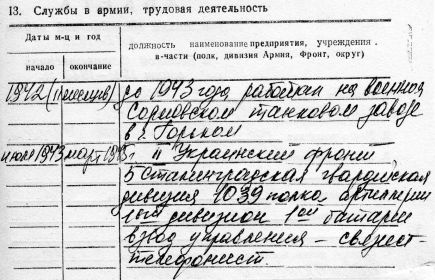 13. Службы в армии, трудовая деятельность
Даты м-ц и год
начало
окончание
должность наименование предприятия, учреждения .
в-части (полк, дивизия Армия, Фронт, округ)
1942 (11 месяцев) до 1943 года работал на военном
Сормовском танковом заводе
в г. Горьком
июль 1943 март 1945 г II Украинский фронт
5 Сталинградская гвардейская
дивизия 1039 полка артиллерии
1ый дивизион 1ой батареи
взвод управления – связист-
телефонист.